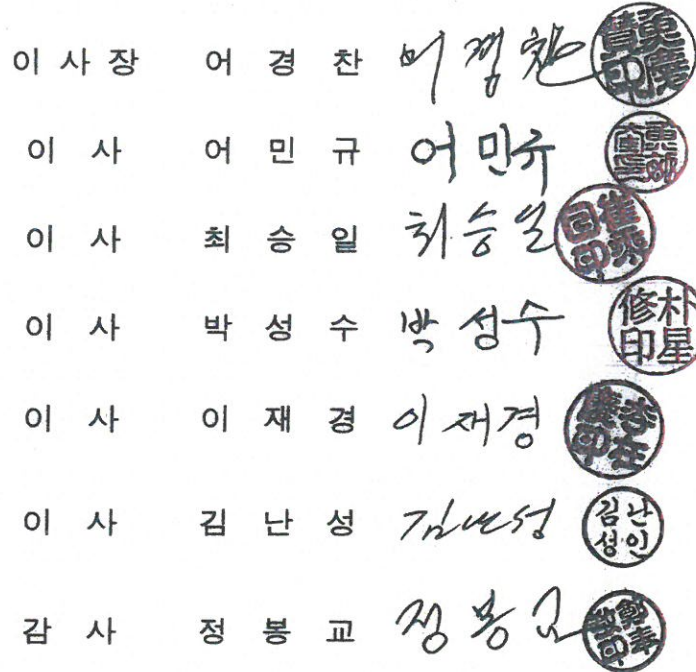 이 사 장 어 경 찬 어 경 찬
이 사 어 민 규 어 민 규
이 사 최 승 일 최 승 일
이 사 박 성 수 박 성 수 朴星修印
이 사 이 재 경 이 재 경 李在慶印
이 사 김 난 성 김 난 성 김난성인
감 사 정 봉 교 정 봉 교